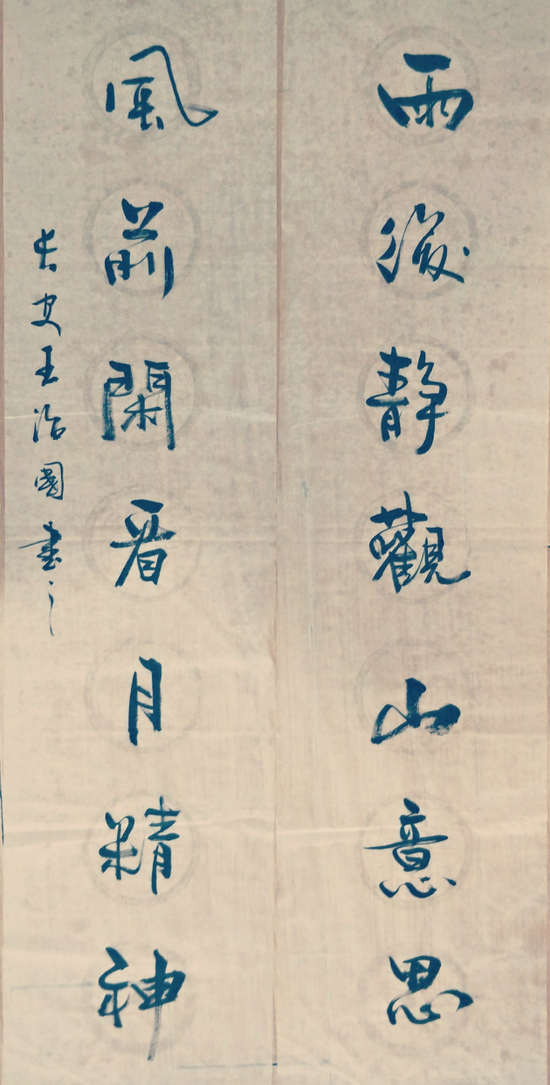 雨後靜觀山意思
風前閑看月精神
長安王治國書之